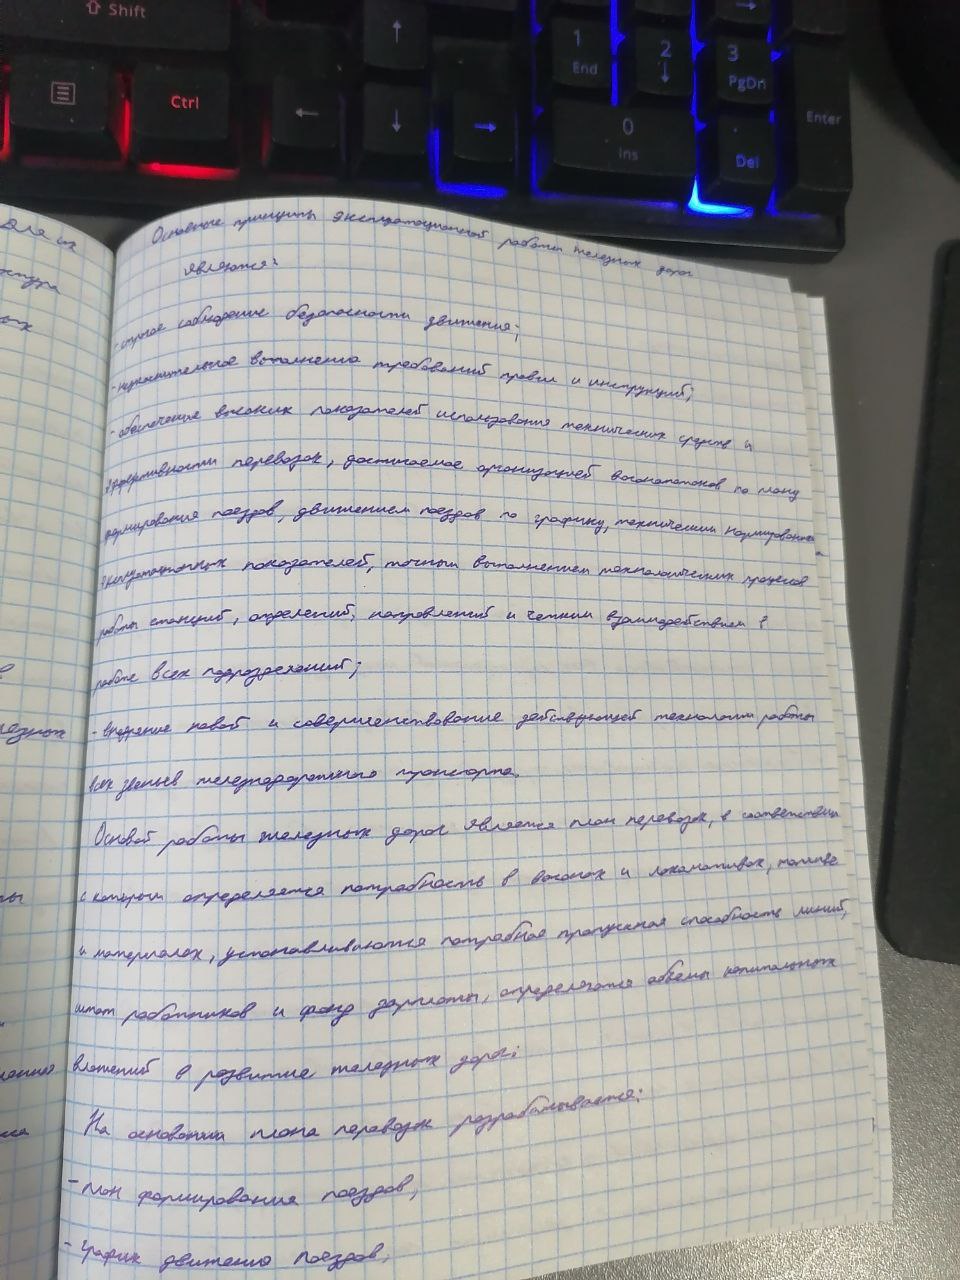 Shift
Ctrl
1
End
2
3
PgDn
0
Ins
Del
Enter
Для их
Основные принципы эксплуатационной работы железных дорог
являются:
- строгое соблюдение безопасности движения;
- неукоснительное выполнение требований правил и инструкций;
- обеспечение высоких показателей использования технических средств и
эффективности перевозок, достигаемое организацией вагонопотоков по плану
формирования поездов, движением поездов по графику, техническим нормированием
эксплуатационных показателей, точным выполнением технологических процессов
работы станций, отделений, направлений и четким взаимодействием в
работе всех подразделений;
- внедрение новой и совершенствование действующей технологии работы
всех звеньев железнодорожного транспорта.
Основой работы железных дорог является план перевозок, в соответствии
с которым определяется потребность в вагонах и локомотивах, топливе
и материалах, устанавливаются потребная пропускная способность линий,
штат работников и фонд зарплаты, определяются объемы капитальных
вложений в развитие железных дорог;
На основании плана перевозок разрабатывается:
- план формирования поездов,
- график движения поездов,